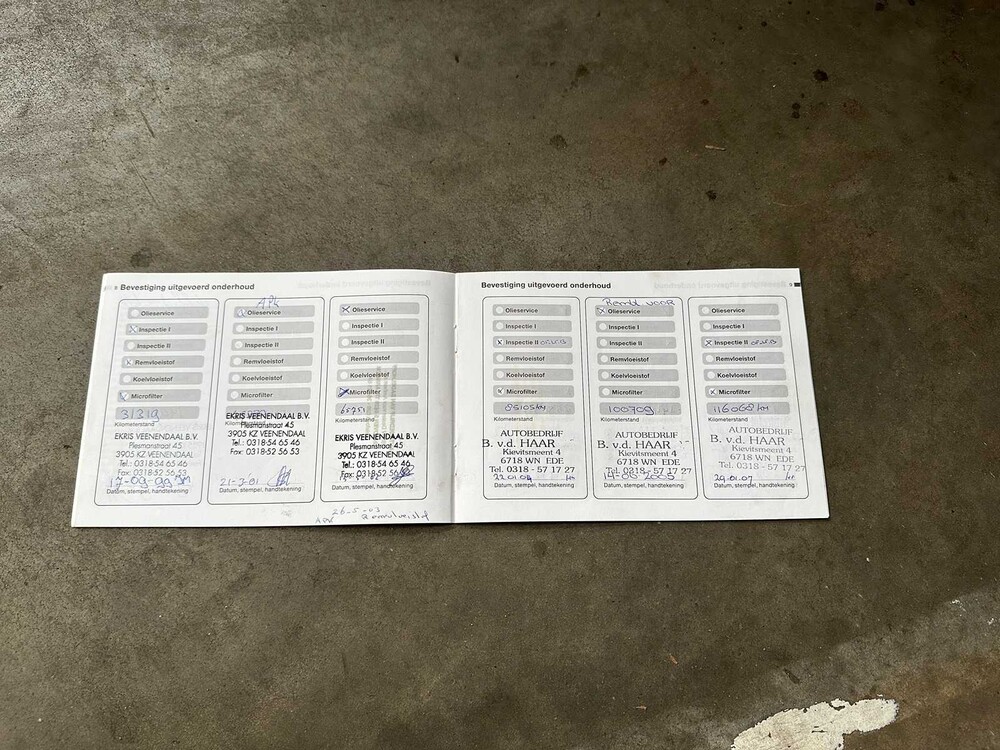 Bevestiging uitgevoerd onderhoud
Olieservice
Inspectie I
Inspectie II
Remvloeistof
Koelvloeistof
Microfilter
31319
Kilometerstand
EKRIS VEENENDAAL B.V.
Plesmanstraat 45
3905 KZ VEENENDAAL
Tel.: 0318-54 65 46
Fax: 0318-52 56 53
17-09-99
Datum, stempel, handtekening
APK
Olieservice
Inspectie I
Inspectie II
Remvloeistof
Koelvloeistof
Microfilter
EKRIS VEENENDAAL B.V.
Plesmanstraat 45
3905 KZ VEENENDAAL
Tel.: 0318-54 65 46
Fax: 0318-52 56 53
21-3-01
Datum, stempel, handtekening
Olieservice
Inspectie I
Inspectie II
Remvloeistof
Koelvloeistof
Microfilter
65251
Kilometerstand
EKRIS VEENENDAAL B.V.
Plesmanstraat 45
3905 KZ VEENENDAAL
Tel.: 0318-54 65 46
Fax: 0318-52 56
Datum, stempel, handtekening
26-5-03
APK
Bevestiging uitgevoerd onderhoud
Olieservice
Inspectie I
Inspectie II
Remvloeistof
Koelvloeistof
Microfilter
85105 km
Kilometerstand
AUTOBEDRIJF
B. v.d. HAAR
Kievitsmeent 4
6718 WN EDE
Tel. 0318 - 57 17 27
22.01.04
Datum, stempel, handtekening
Remb voor
Olieservice
Inspectie I
Inspectie II
Remvloeistof
Koelvloeistof
Microfilter
100709
Kilometerstand
AUTOBEDRIJF
B. v.d. HAAR
Kievitsmeent 4
6718 WN EDE
Tel. 0318 - 57 17 27
14-06 2005
Datum, stempel, handtekening
Olieservice
Inspectie I
Inspectie II
Remvloeistof
Koelvloeistof
Microfilter
116068 km
Kilometerstand
AUTOBEDRIJF
B. v.d. HAAR
Kievitsmeent 4
6718 WN EDE
Tel. 0318 - 57 17 27
29.01.07
Datum, stempel, handtekening